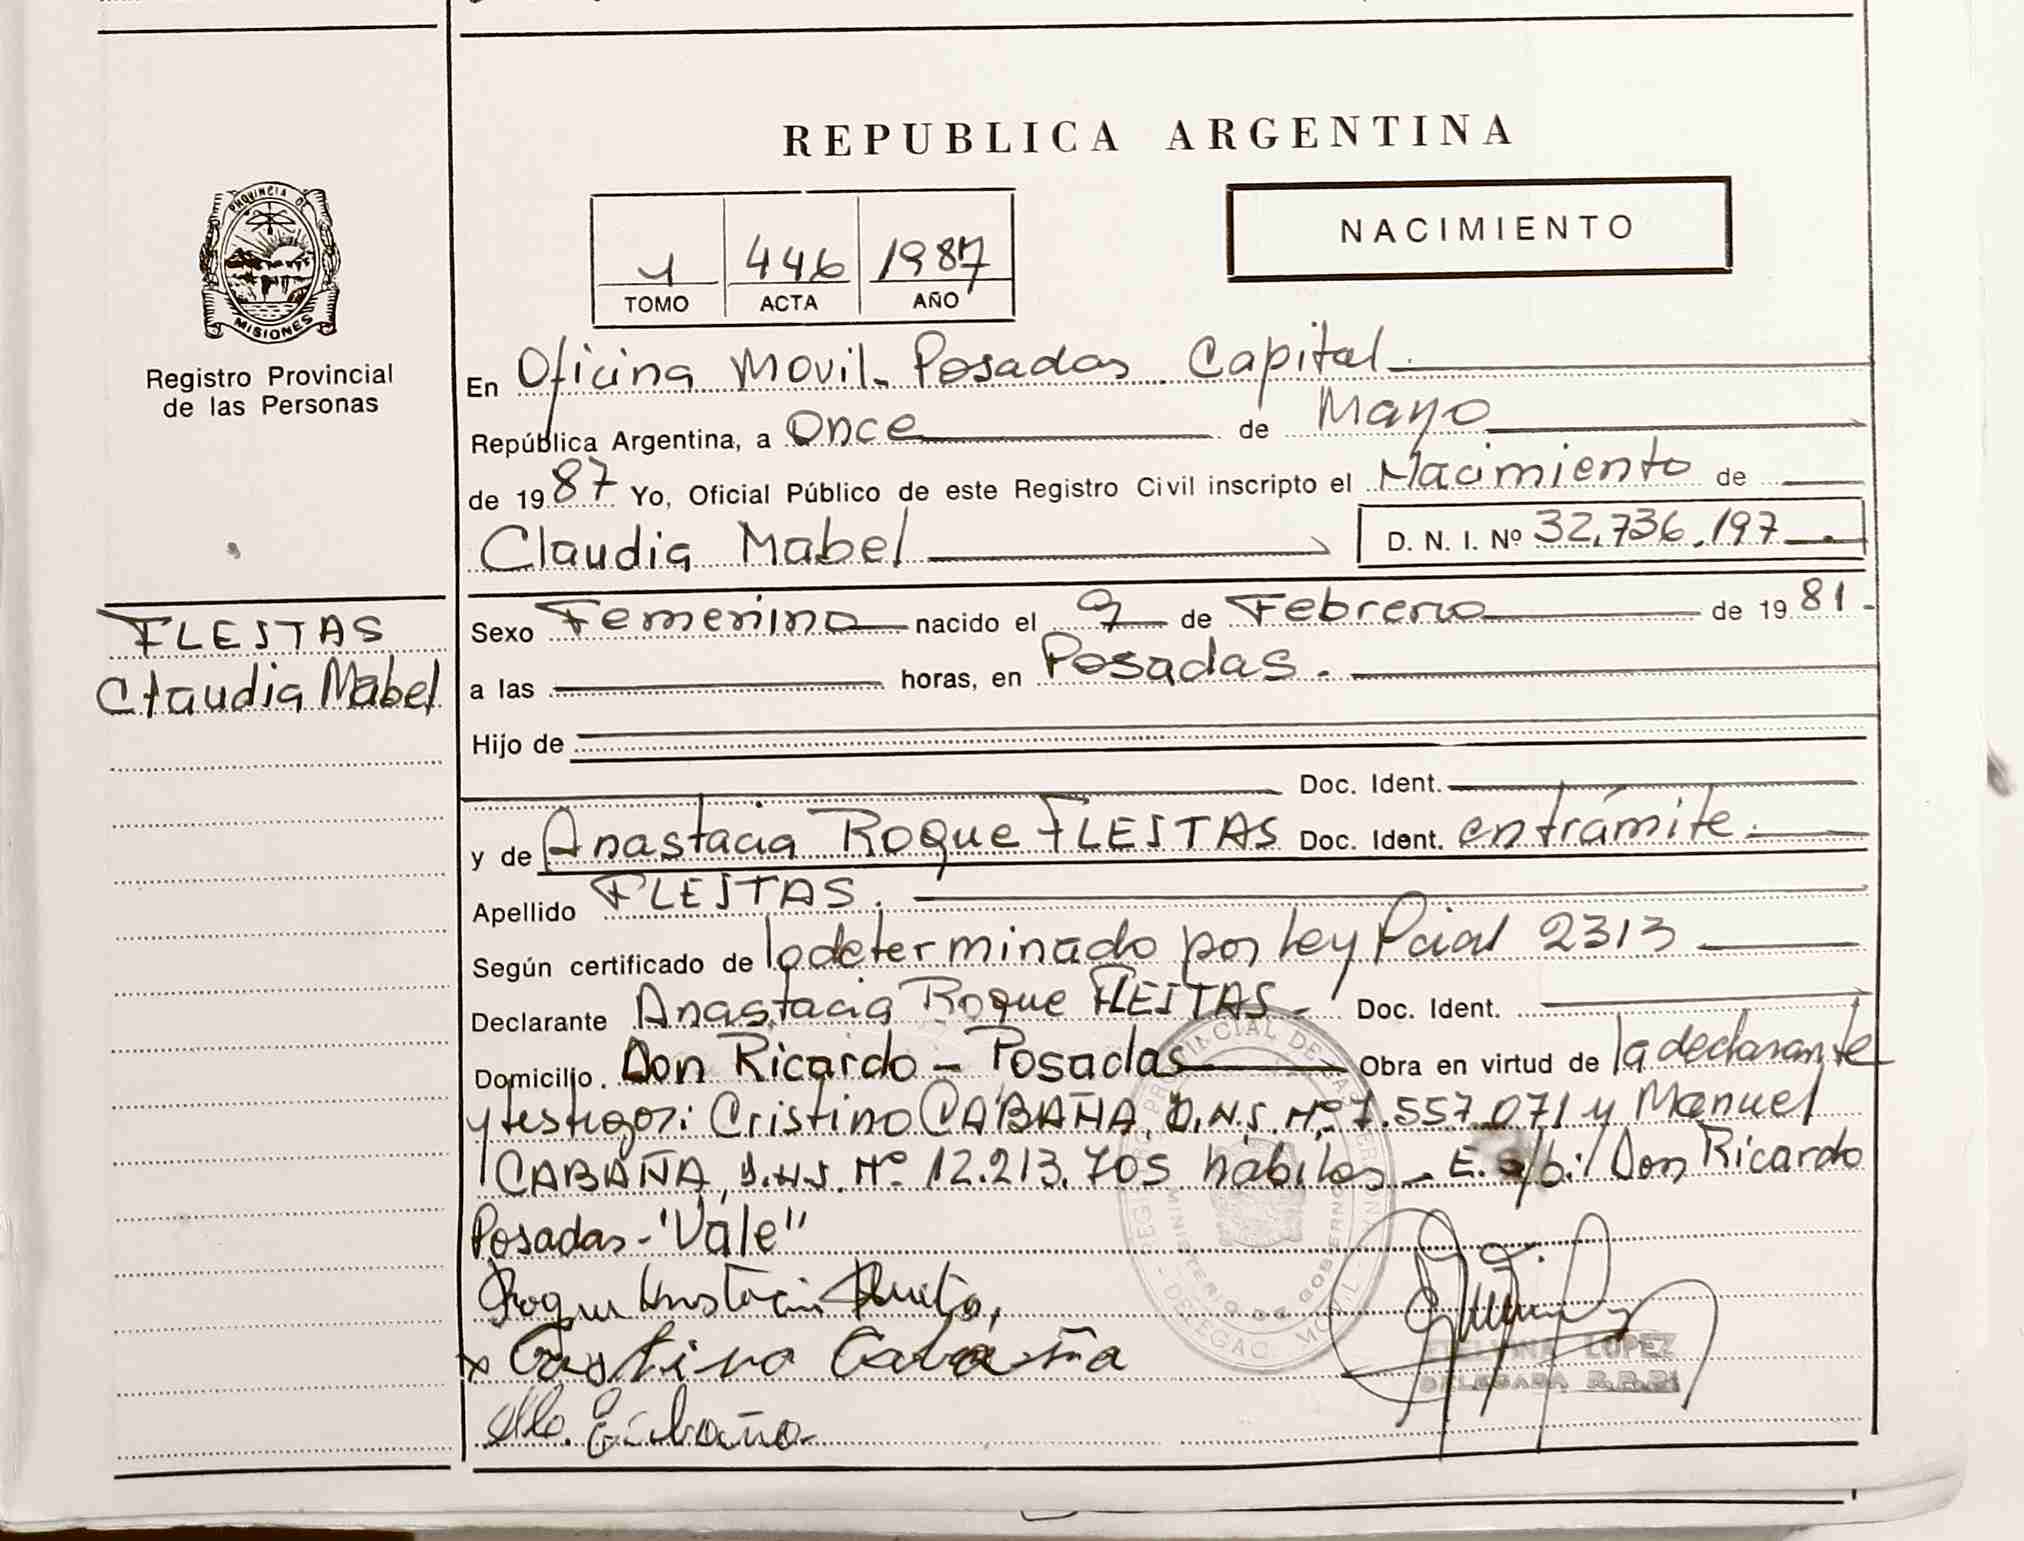 REPUBLICA ARGENTINA
NACIMIENTO
1 446 1987
TOMO ACTA AÑO
PROVINCIA DE
MISIONES
Registro Provincial
de las Personas
En Oficina Movil. Posadas Capital
República Argentina, a Once de Mayo
de 1987 Yo, Oficial Público de este Registro Civil inscripto el Nacimiento de
Claudia Mabel D. N. I. Nº 32.736.197
FLEITAS
Claudia Mabel
Sexo Femenino nacido el 9 de Febrero de 1981.
a las horas, en Posadas.
Hijo de
Doc. Ident.
y de Anastacia Roque FLEITAS Doc. Ident. en trámite.
Apellido FLEITAS.
Según certificado de lo determinado por Ley Pcial 2313
Declarante Anastacia Roque FLEITAS - Doc. Ident.
Domicilio. Don Ricardo - Posadas Obra en virtud de la declarante
y testigos: Cristino CABAÑA, D.N.I. Nº 7.557.071 y Manuel
CABAÑA, D.N.I. Nº 12.213.705 hábiles - E. s/b:/ Don Ricardo
Posadas - "Vale"
Roque
Cristino Cabaña
LOPEZ
DELEGADA R.P.P.